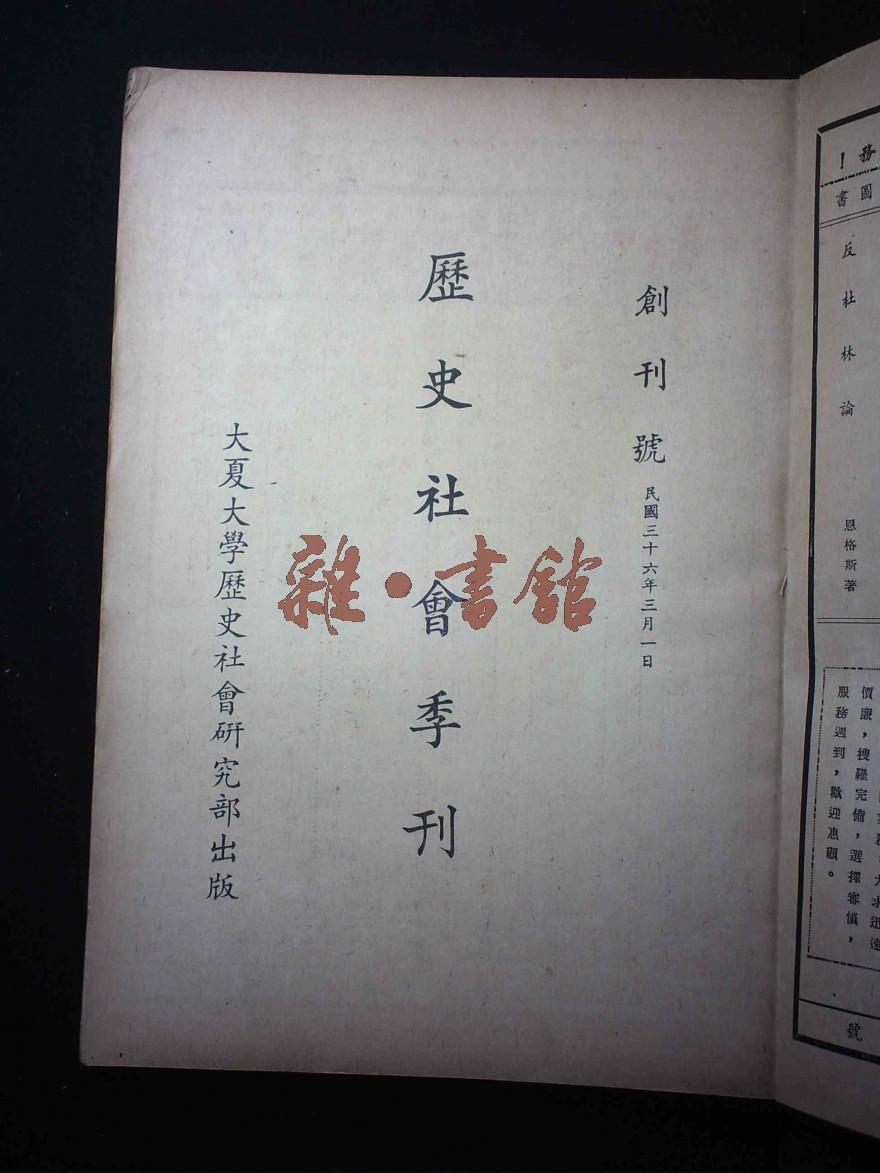 務！
圖書
反杜林論
恩格斯著
價廉，搜羅完備，選擇審慎，
服務週到，歡迎惠顧。
號
創刊號 民國三十六年三月一日
歷史社會季刊
大夏大學歷史社會研究部出版
雜·書館